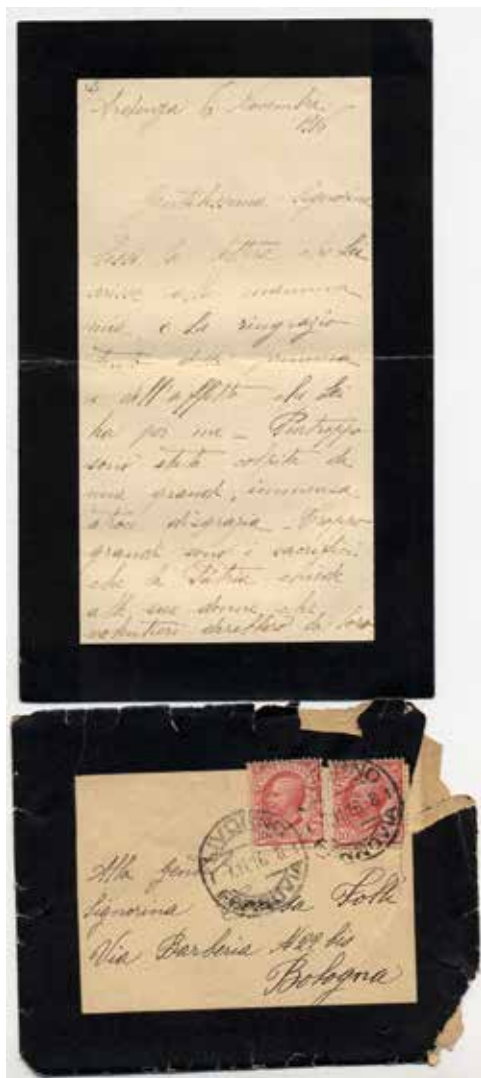 Ardenza 6 Novembre
1916
Gentilissima Signorina
la lettera che Lei
alla mamma
mia e La ringrazio
tanto della premura
e dell'affetto che Lei
ha per me – Purtroppo
sono stata colpita da
una grande, immensa,
atroce disgrazia. Troppo
grandi sono i sacrifici
che la Patria chiede
alle sue donne, che
volentieri darebbero la loro
LIVORNO
FERROVIA
LIVORNO
FERROVIA
Alla Gen
Signorina Folli
Via Barberia N 22 bis
Bologna